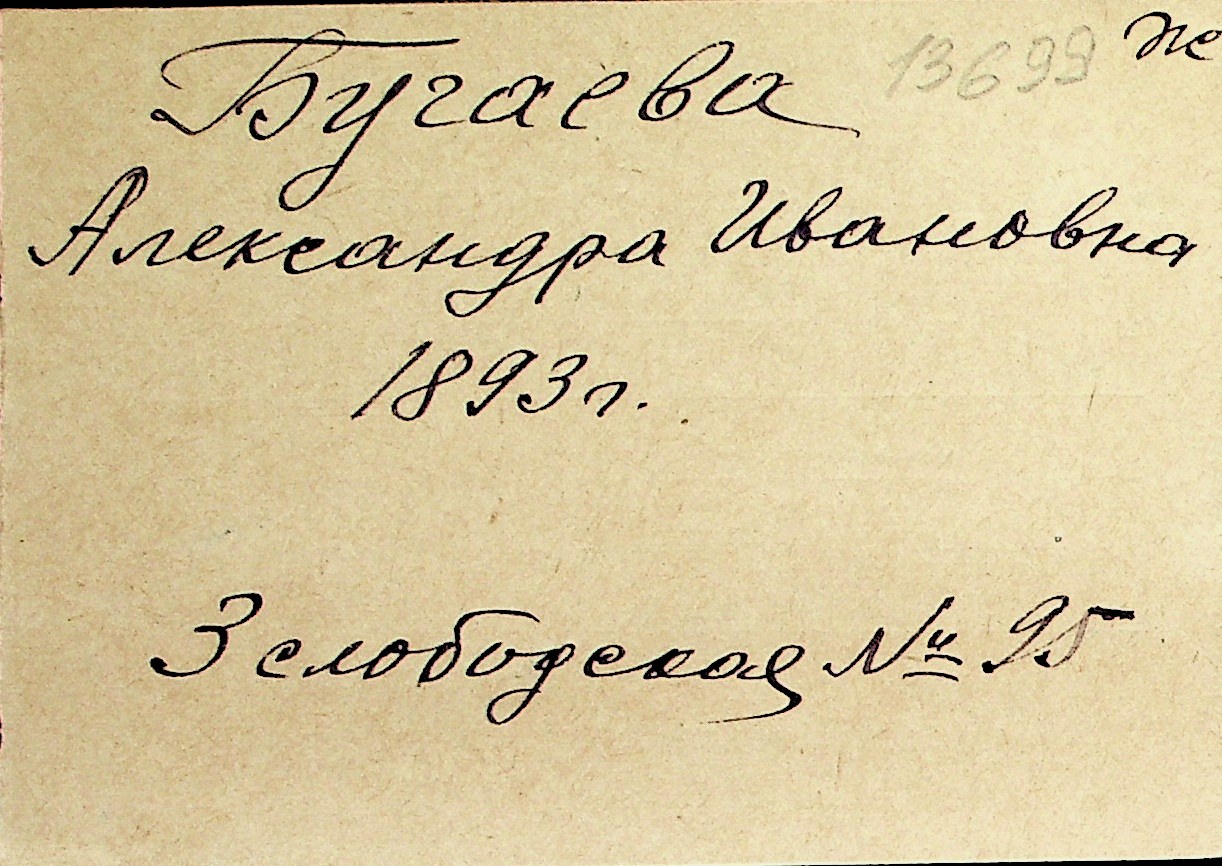 Бугаева 13699 ж
Александра Ивановна
1893 г.
3 слободская № 95